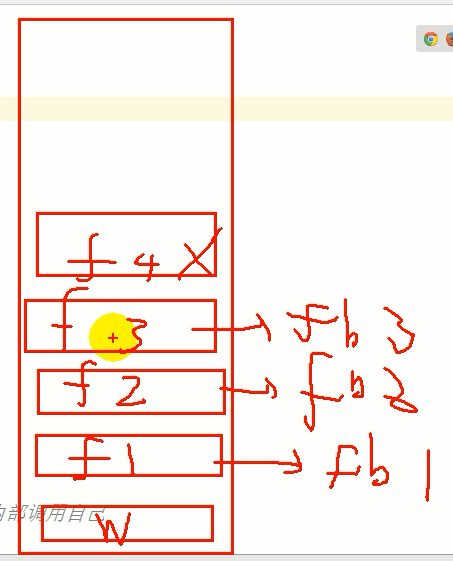 f4 X
f3 fb3
f2 fb2
f1 fb1
内部调用自己
W